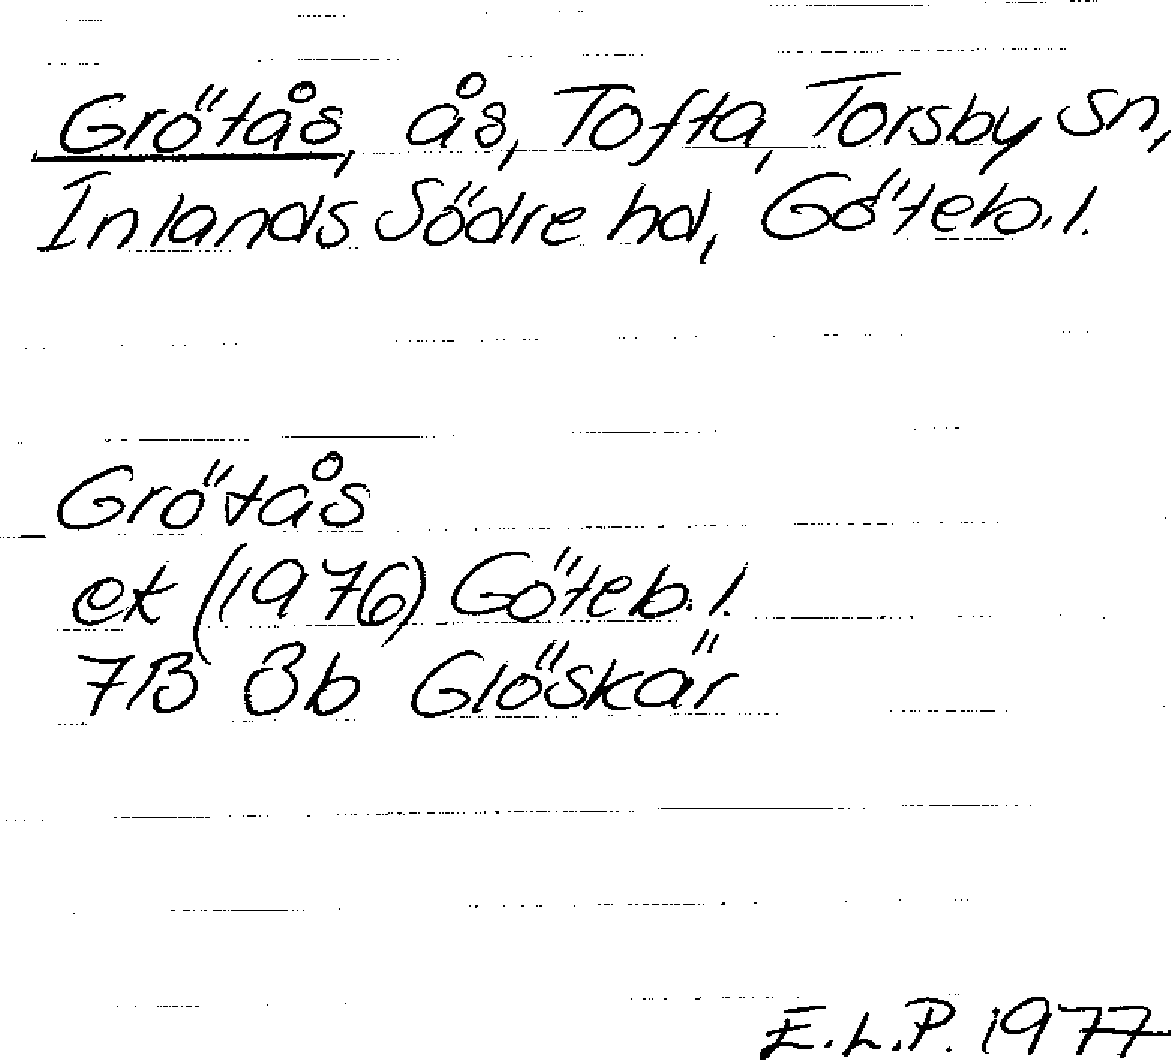 Grötås, ås, Tofta, Torsby sn,
Inlands Södre hd, Göteb.l.
Grötås
ek (1976) Göteb.l.
7B 3b Glöskär
E.L.P. 1977